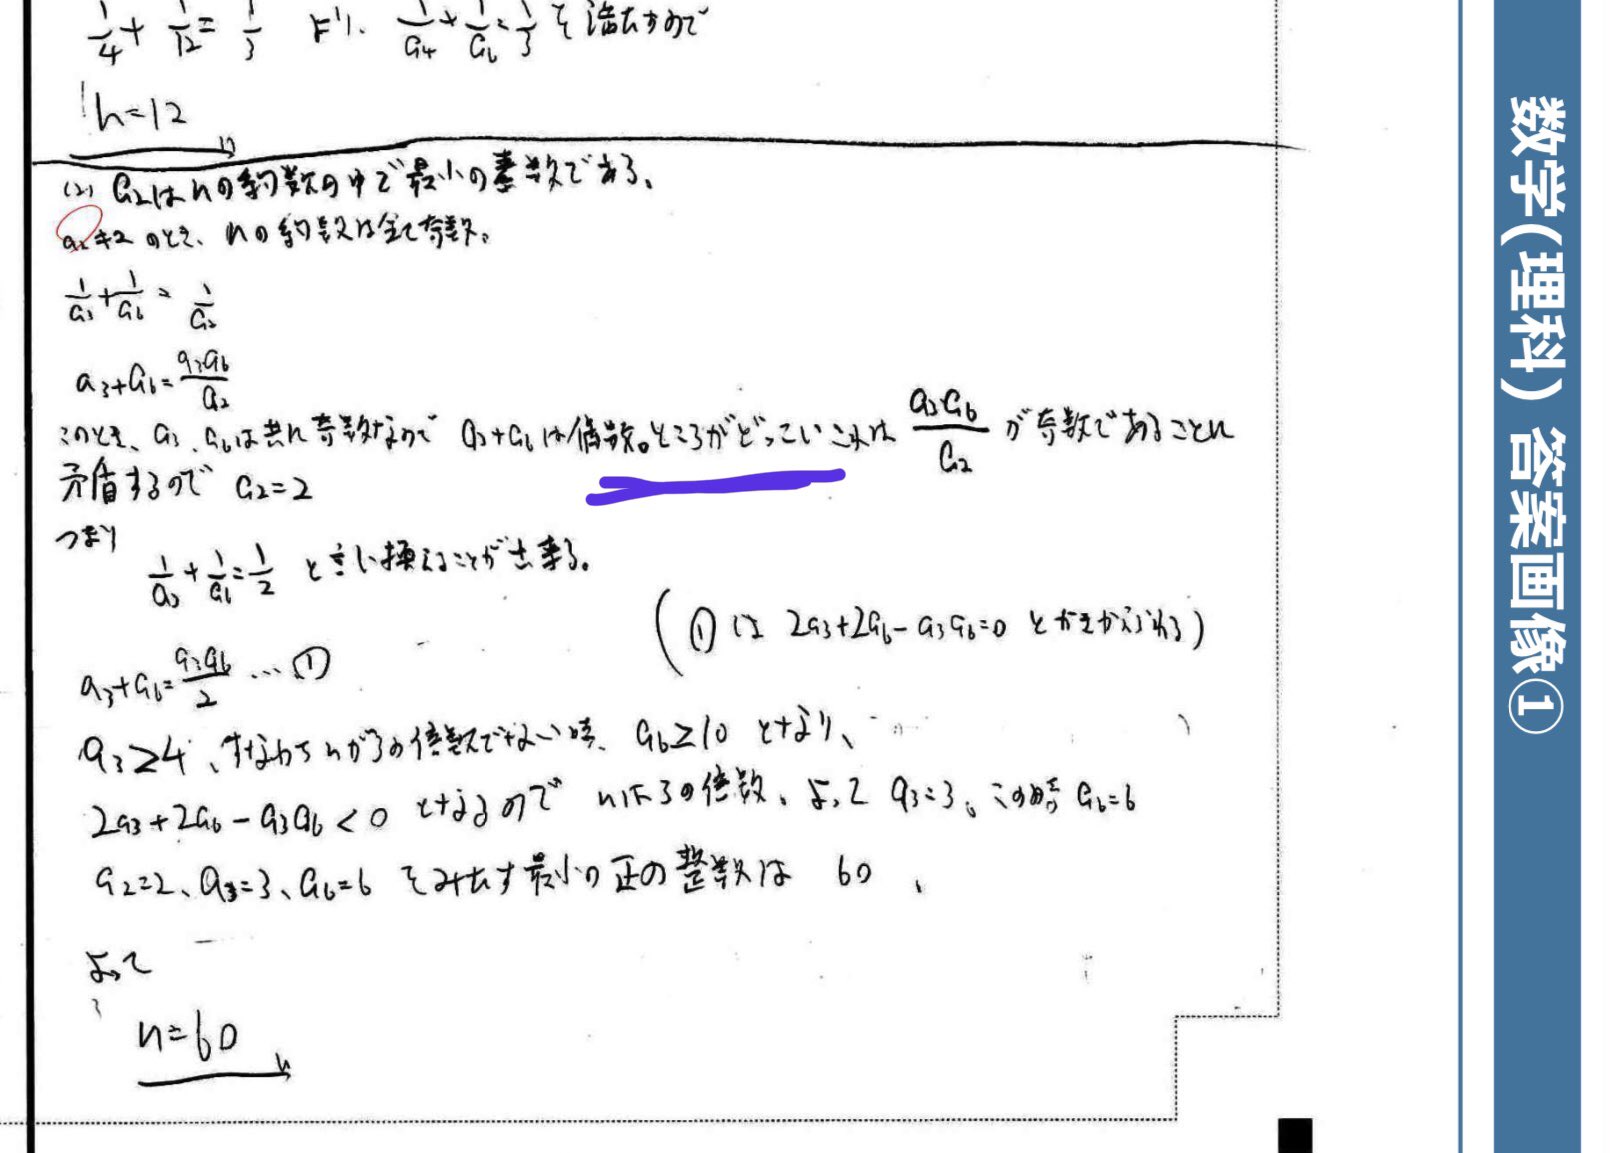 1/4 + 1/12 = 1/3 より、 1/a₄ + 1/a₆ = 1/3 を満たすので
n=12
(2) a₂はnの約数の中で最小の素数である。
a₂≠2 のとき、nの約数は全て奇数。
1/a₃ + 1/a₆ = 1/a₂
a₃+a₆ = a₃a₆/a₂
このとき、a₃、a₆は共に奇数なので a₃+a₆は偶数。ところがどっこいこれは a₃a₆/a₂ が奇数であることに
矛盾するので a₂=2
つまり
1/a₃ + 1/a₆ = 1/2 と言い換えることが出来る。
(①は 2a₃+2a₆-a₃a₆=0 とかきかえられる)
a₃+a₆ = a₃a₆/2 …①
a₃≧4、すなわちnが3の倍数でない時、a₆≧10 となり、
2a₃+2a₆-a₃a₆<0 となるので nは3の倍数、よって a₃=3。この時 a₆=6
a₂=2、a₃=3、a₆=6 をみたす最小の正の整数は 60、
よって
n=60
数学(理科) 答案画像①